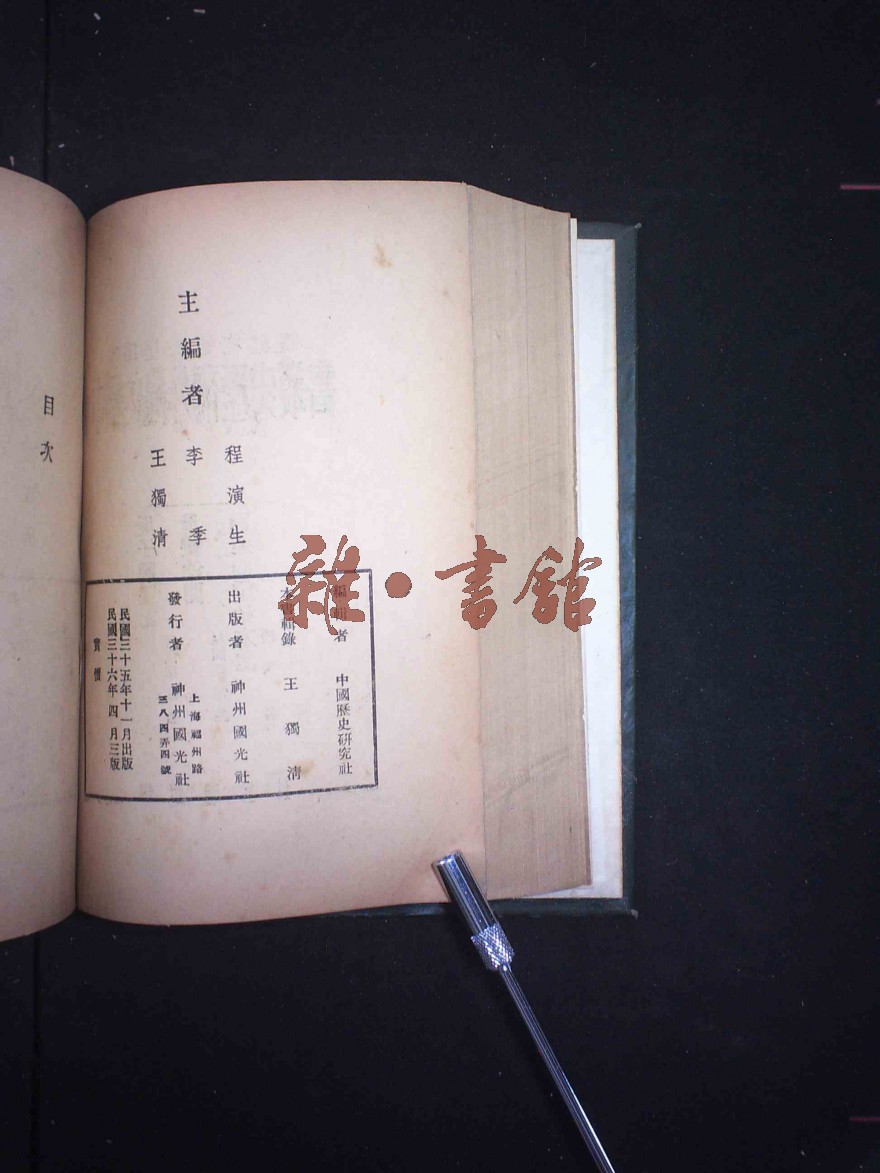 主編者
程演生
李季
王獨清
編輯者 中國歷史研究社
本書輯錄 王獨清
出版者 神州國光社
發行者 神州國光社
上海福州路
三八四弄四號
民國三十五年十一月出版
民國三十六年四月三版
實價
目次
雜·書館